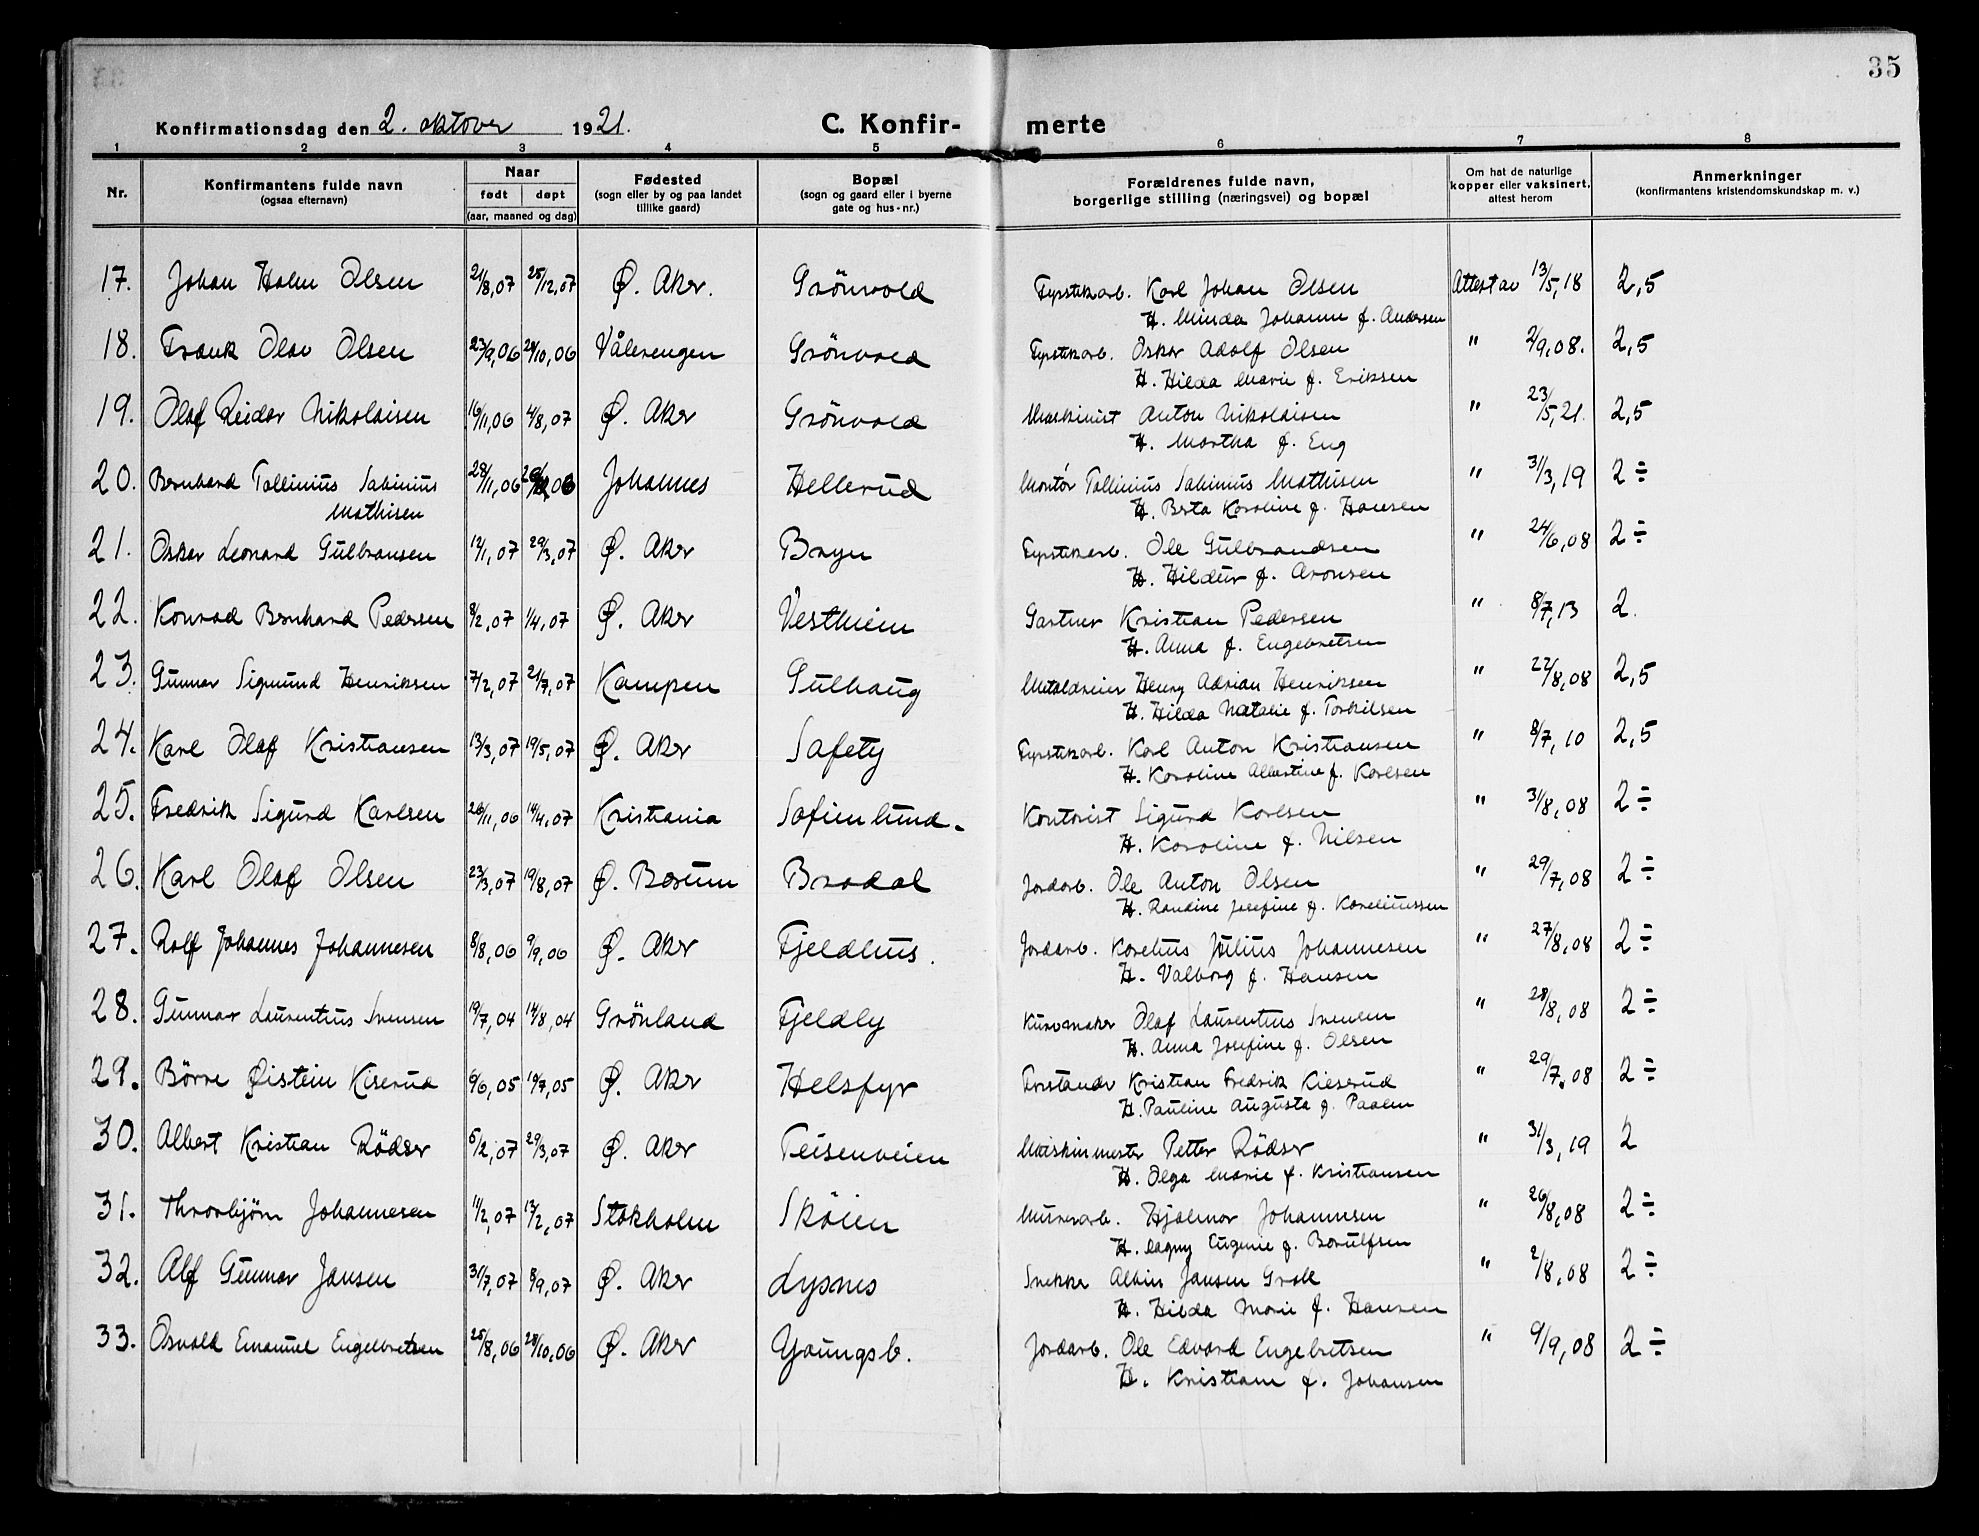 35
Konfirmationsdag den 2. oktober 1921.
C. Konfir- merte
1 2 3 4 5 6 7 8
Nr.
Konfirmantens fulde navn
(ogsaa efternavn)
Naar
født døpt
(aar, maaned og dag)
Fødested
(sogn eller by og paa landet
tillike gaard)
Bopæl
(sogn og gaard eller i byerne
gate og hus-nr.)
Forældrenes fulde navn,
borgerlige stilling (næringsvei) og bopæl
Om hat de naturlige
kopper eller vaksinert,
attest herom
Anmerkninger
(konfirmantens kristendomskundskap m. v.)
17. Johan Holm Olsen 21/8,07 25/12,07 Ø. Aker. Grönvold Fyrstikarb. Karl Johan Olsen Attest av 13/5,18 2,5
H. Minda Johanne f. Andersen
18. Frank Olav Olsen 23/9,06 28/10,06 Vålerengen Grönvold Fyrstikarb. Oskar Adolf Olsen " 2/9,08. 2,5
H. Hilda Marie f. Eriksen
19. Olaf Reidar Nikolaisen 16/11,06 4/8,07 Ø. Aker Grönvold Maskinist Anton Nikolaisen " 23/5,21. 2,5
H. Martha f. Eng
20. Bernhard Tollinius Sabinius 28/11,06 Johannes Hellerud Montør Tollinius Sabinius Mathisen " 31/3,19 2÷
Mathisen H. Berta Karoline f. Hansen
21. Oskar Leonard Gulbransen 12/1,07 29/3,07 Ø. Aker Bryn Fyrstikarb. Ole Gulbrandsen " 24/6,08 2÷
H. Hildur f. Aronsen
22. Konrad Bernhard Pedersen 8/2,07 1/4,07 Ø. Aker Vestheim Gartner Kristian Pedersen " 8/7,13 2.
H. Anna f. Engebretsen
23. Gunnar Sigmund Henriksen 7/2,07 21/7,07 Kampen Gulhaug Metaldreier Henry Adrian Henriksen " 22/8,08 2,5
H. Hilda Natalie f. Torkilsen
24. Karl Olaf Kristiansen 13/3,07 19/5,07 Ø. Aker Safety Fyrstikarb. Karl Anton Kristiansen " 8/7,10 2,5
H. Karoline Albertine f. Karlsen
25. Fredrik Sigurd Karlsen 26/11,06 14/4,07 Kristiania Sofienlund. Kontorist Sigurd Karlsen " 31/8,08 2÷
H. Karoline f. Nilsen
26. Karl Olaf Olsen 23/3,07 19/8,07 Ø. Bærum Brodal Jordarb. Ole Anton Olsen " 29/7,08 2÷
H. Randine Josefine f. Kareliussen
27. Rolf Johannes Johannesen 8/8,06 9/9,06 Ø. Aker Fjeldhus. Jordarb. Karelius Julius Johannesen " 27/8,08 2÷
H. Valborg f. Hansen
28. Gunnar Laurentius Svensen 19/7,04 14/8,04 Grönland Fjeldly Olaf Laurentius Svensen " 28/8,08 2÷
H. Anna Josefine f. Olsen
29. Börre Øistein Kiserud 6/6,05 19/7,05 Ø. Aker Helsfyr Forstander Kristian Fredrik Kieserud " 29/7,08 2÷
H. Pauline Augusta f. Paalen
30. Albert Kristian Rödser 5/2,07 29/3,07 Ø. Aker Teisenveien Maskinmester Petter Rödser " 31/3,19 2
H. Olga Marie f. Kristiansen
31. Throrbjörn Johannesen 11/2,07 17/2,07 Stokholm Sköien Murerarb. Hjalmar Johannesen " 26/8,08 2÷
H. Dagny Eugenie f. Børulfsen
32. Alf Gunnar Jansen 31/7,07 8/9,07 Ø. Aker Lysnes Snekker Albin Jansen " 2/8,08 2÷
H. Hilda Marie f. Hansen
33. Osvald Emanuel Engelbretsen 25/8,06 28/10,06 Ø. Aker Youngsb. Jordarb. Ole Edvard Engebretsen " 9/9,08 2÷
H. Kristiane f. Johansen